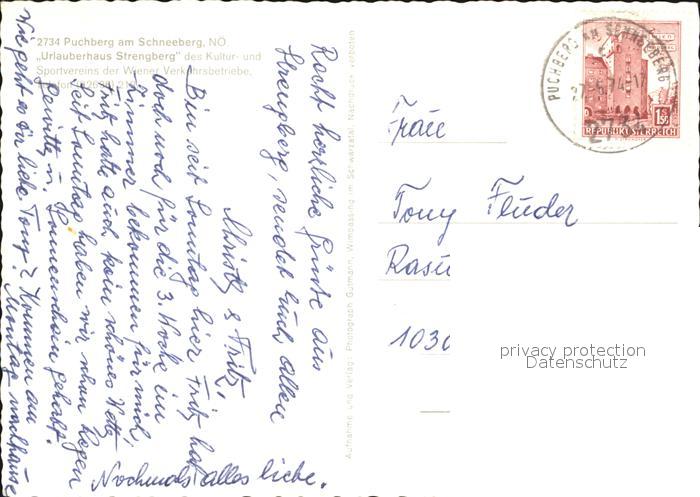 2734 Puchberg am Schneeberg, NÖ
„Urlauberhaus Strengberg" des Kultur- und
Sportvereins der Wiener Verkehrsbetriebe,
Recht herzliche Grüsse aus
Strengberg, sendet Euch allen
Christl & Fritz.
Bin seit Sonntag hier Fritz hat
doch noch für die 3. Woche ein
Zimmer bekommen für mich,
Fritz hatte auch kein schönes Wetter
seit Sonntag haben wir schon Regen
Gewitter u. Sonnenschein gehabt.
Wie geht es Dir liebe Tony? Kommen am
Montag nachhause
Nochmals alles liebe.
Aufnahme und Verlag: Photograph Gutmann, Wimpassing im Schwarzatal. Nachdruck verboten
PUCHBERG AM SCHNEEBERG
27.-6.74-17
2734
1.50
REPUBLIK ÖSTERREICH
Frau
Tony Fluder
Rasu
1030
privacy protection
Datenschutz